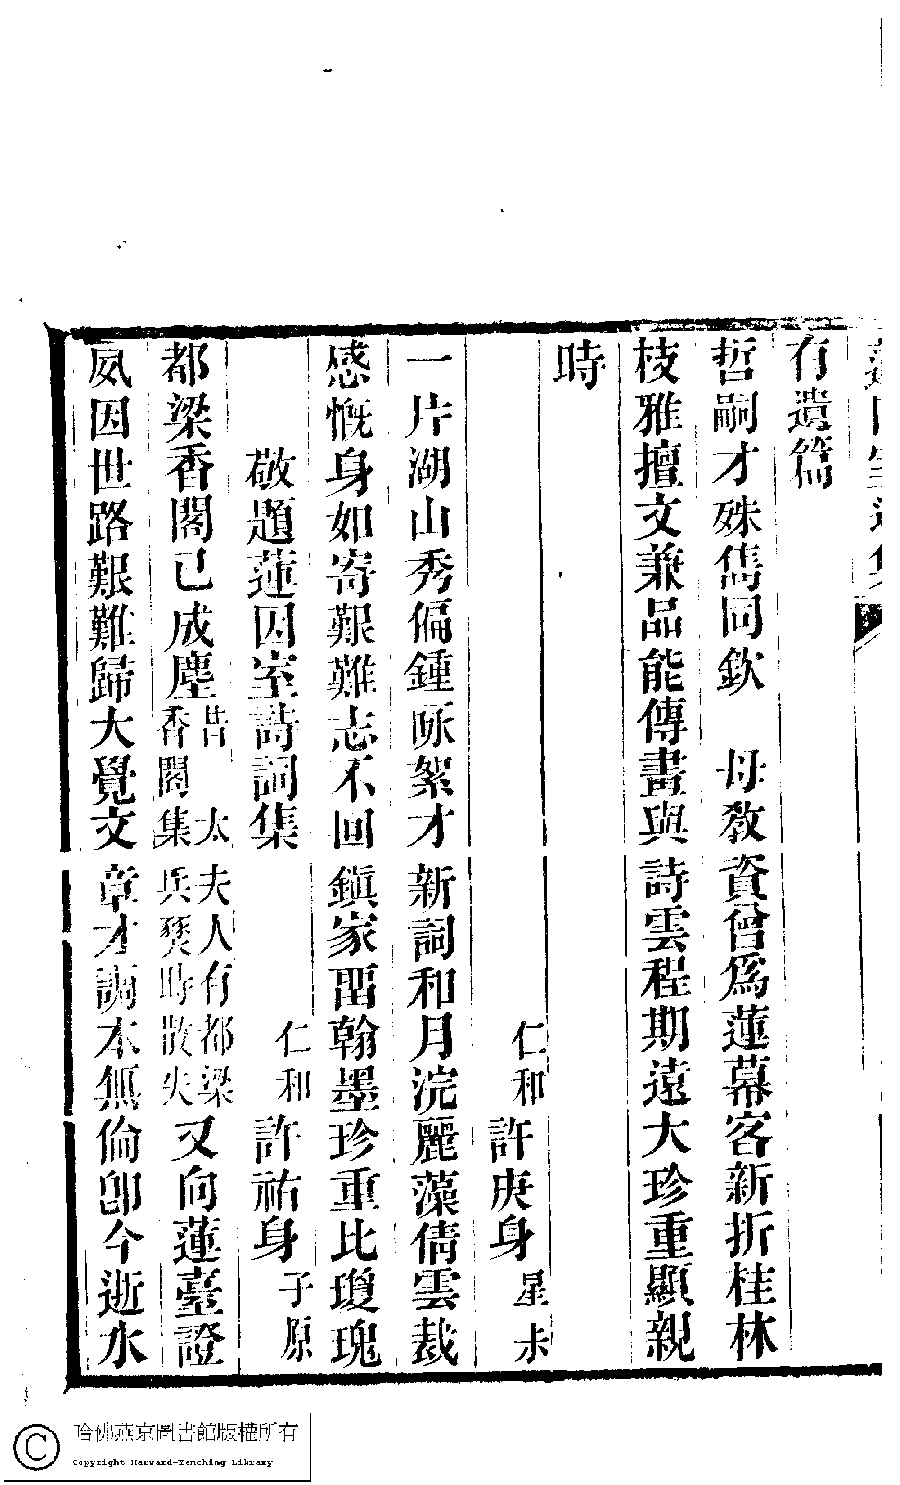 蓮因室遺集
有遺篇
哲嗣才殊雋同欽　母教資曾爲蓮幕客新折桂林
枝雅擅文兼品能傳畫與詩雲程期遠大珍重顯親
時
仁和許庚身星未
一片湖山秀偏鍾咏絮才新詞和月浣麗藻倩雲裁
感慨身如寄艱難志不回鎭家畱翰墨珍重比瓊瑰
敬題蓮因室詩詞集
仁和許祐身子原
都梁香閣已成塵昔　太夫人有都梁香閣集兵燹時散失又向蓮臺證
夙因世路艱難歸大覺文章才調本無倫卽今逝水
哈佛燕京圖書館版權所有
Copyright Harvard-Yenching Library